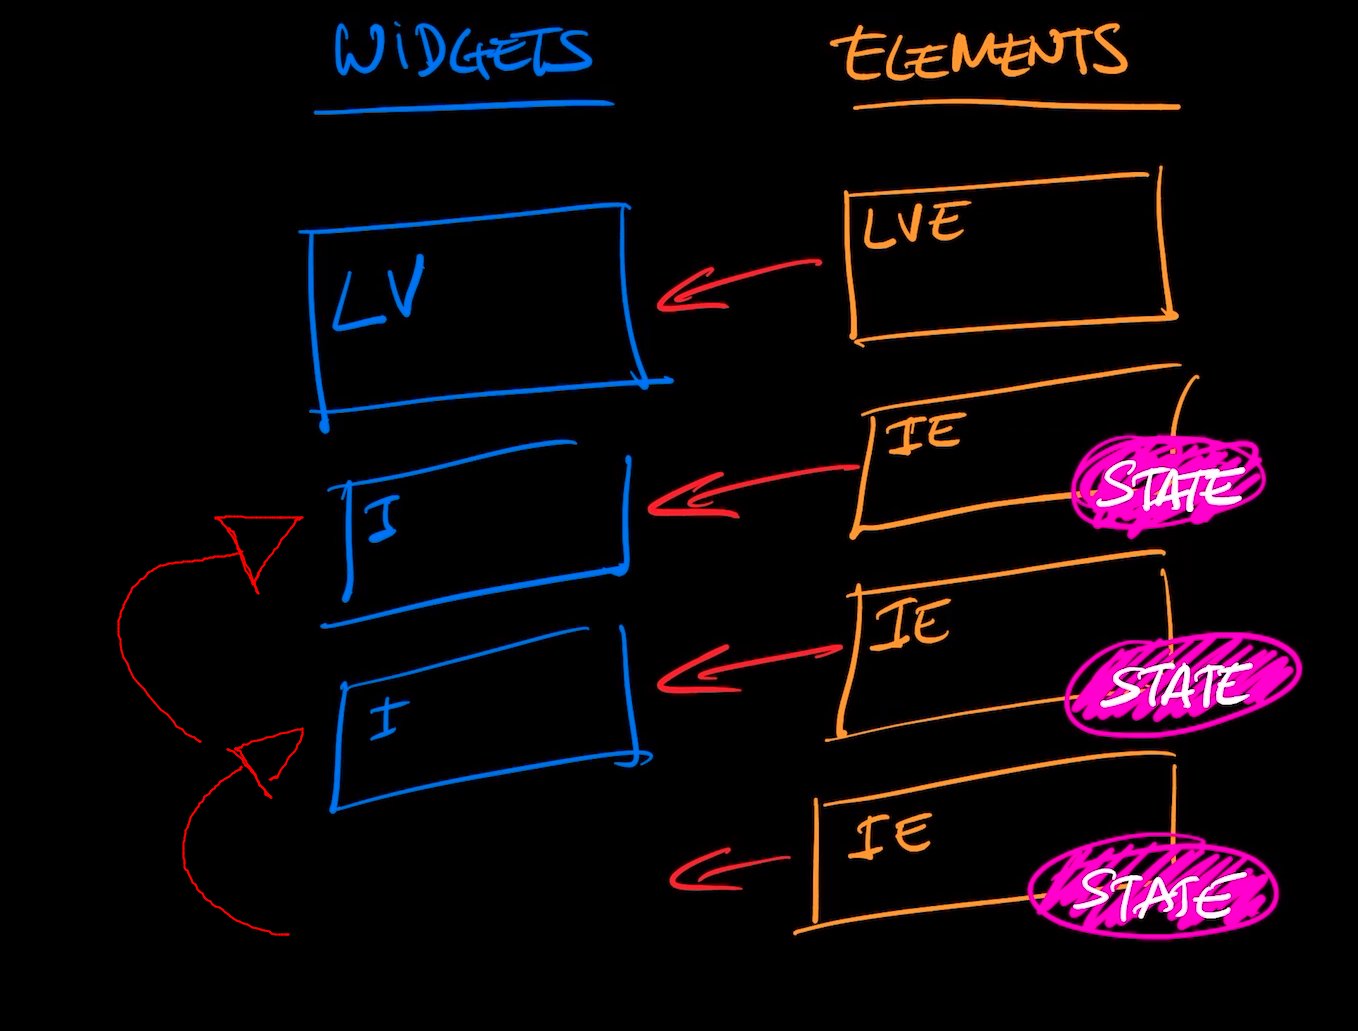 WIDGETS
ELEMENTS
LV
LVE
I
IE
STATE
I
IE
STATE
IE
STATE